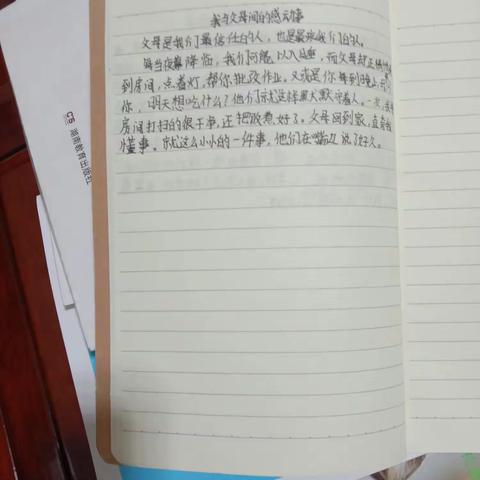 我与父母间的感动事
父母是我们最信任的人，也是最亲我们的人。
每当夜幕降临，我们可能以入睡，而父母却正悄悄
到房间，点着灯，帮你批改作业。又或是你每到晚上，
你，明天想吃什么？他们就这样默默守着人。一次，我
房间打扫的很干净，还把饭煮好了。父母回到家，直夸我
懂事。就这么小小的一件事，他们在嘴边说了好久。
湖南教育出版社